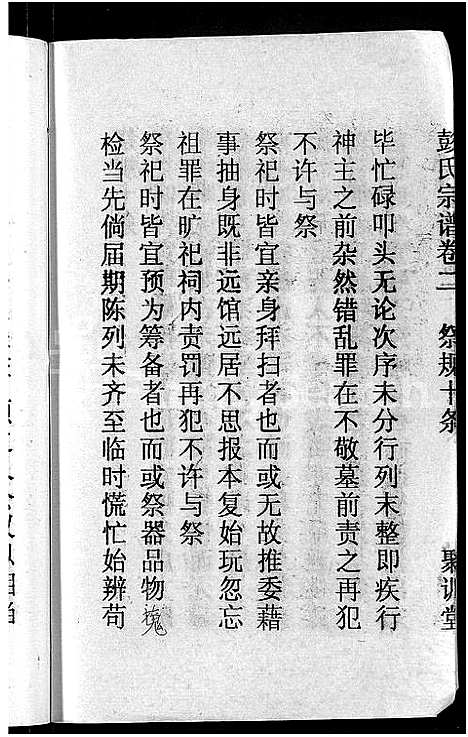 彭氏宗谱卷二 祭规十条 聚训堂
毕忙碌叩头无论次序未分行列末整即疾行
神主之前杂然错乱罪在不敬墓前责之再犯
不许与祭
祭祀时皆宜亲身拜扫者也而或无故推委藉
事抽身既非远馆远居不思报本复始玩忽忘
祖罪在旷祀祠内责罚再犯不许与祭
祭祀时皆宜预为筹备者也而或祭器品物
检当先倘届期陈列未齐至临时慌忙始辨苟